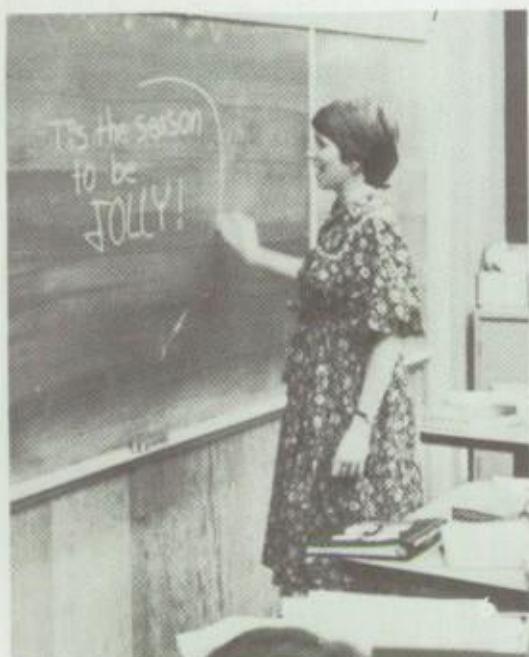 T'is the season
to be
JOLLY!